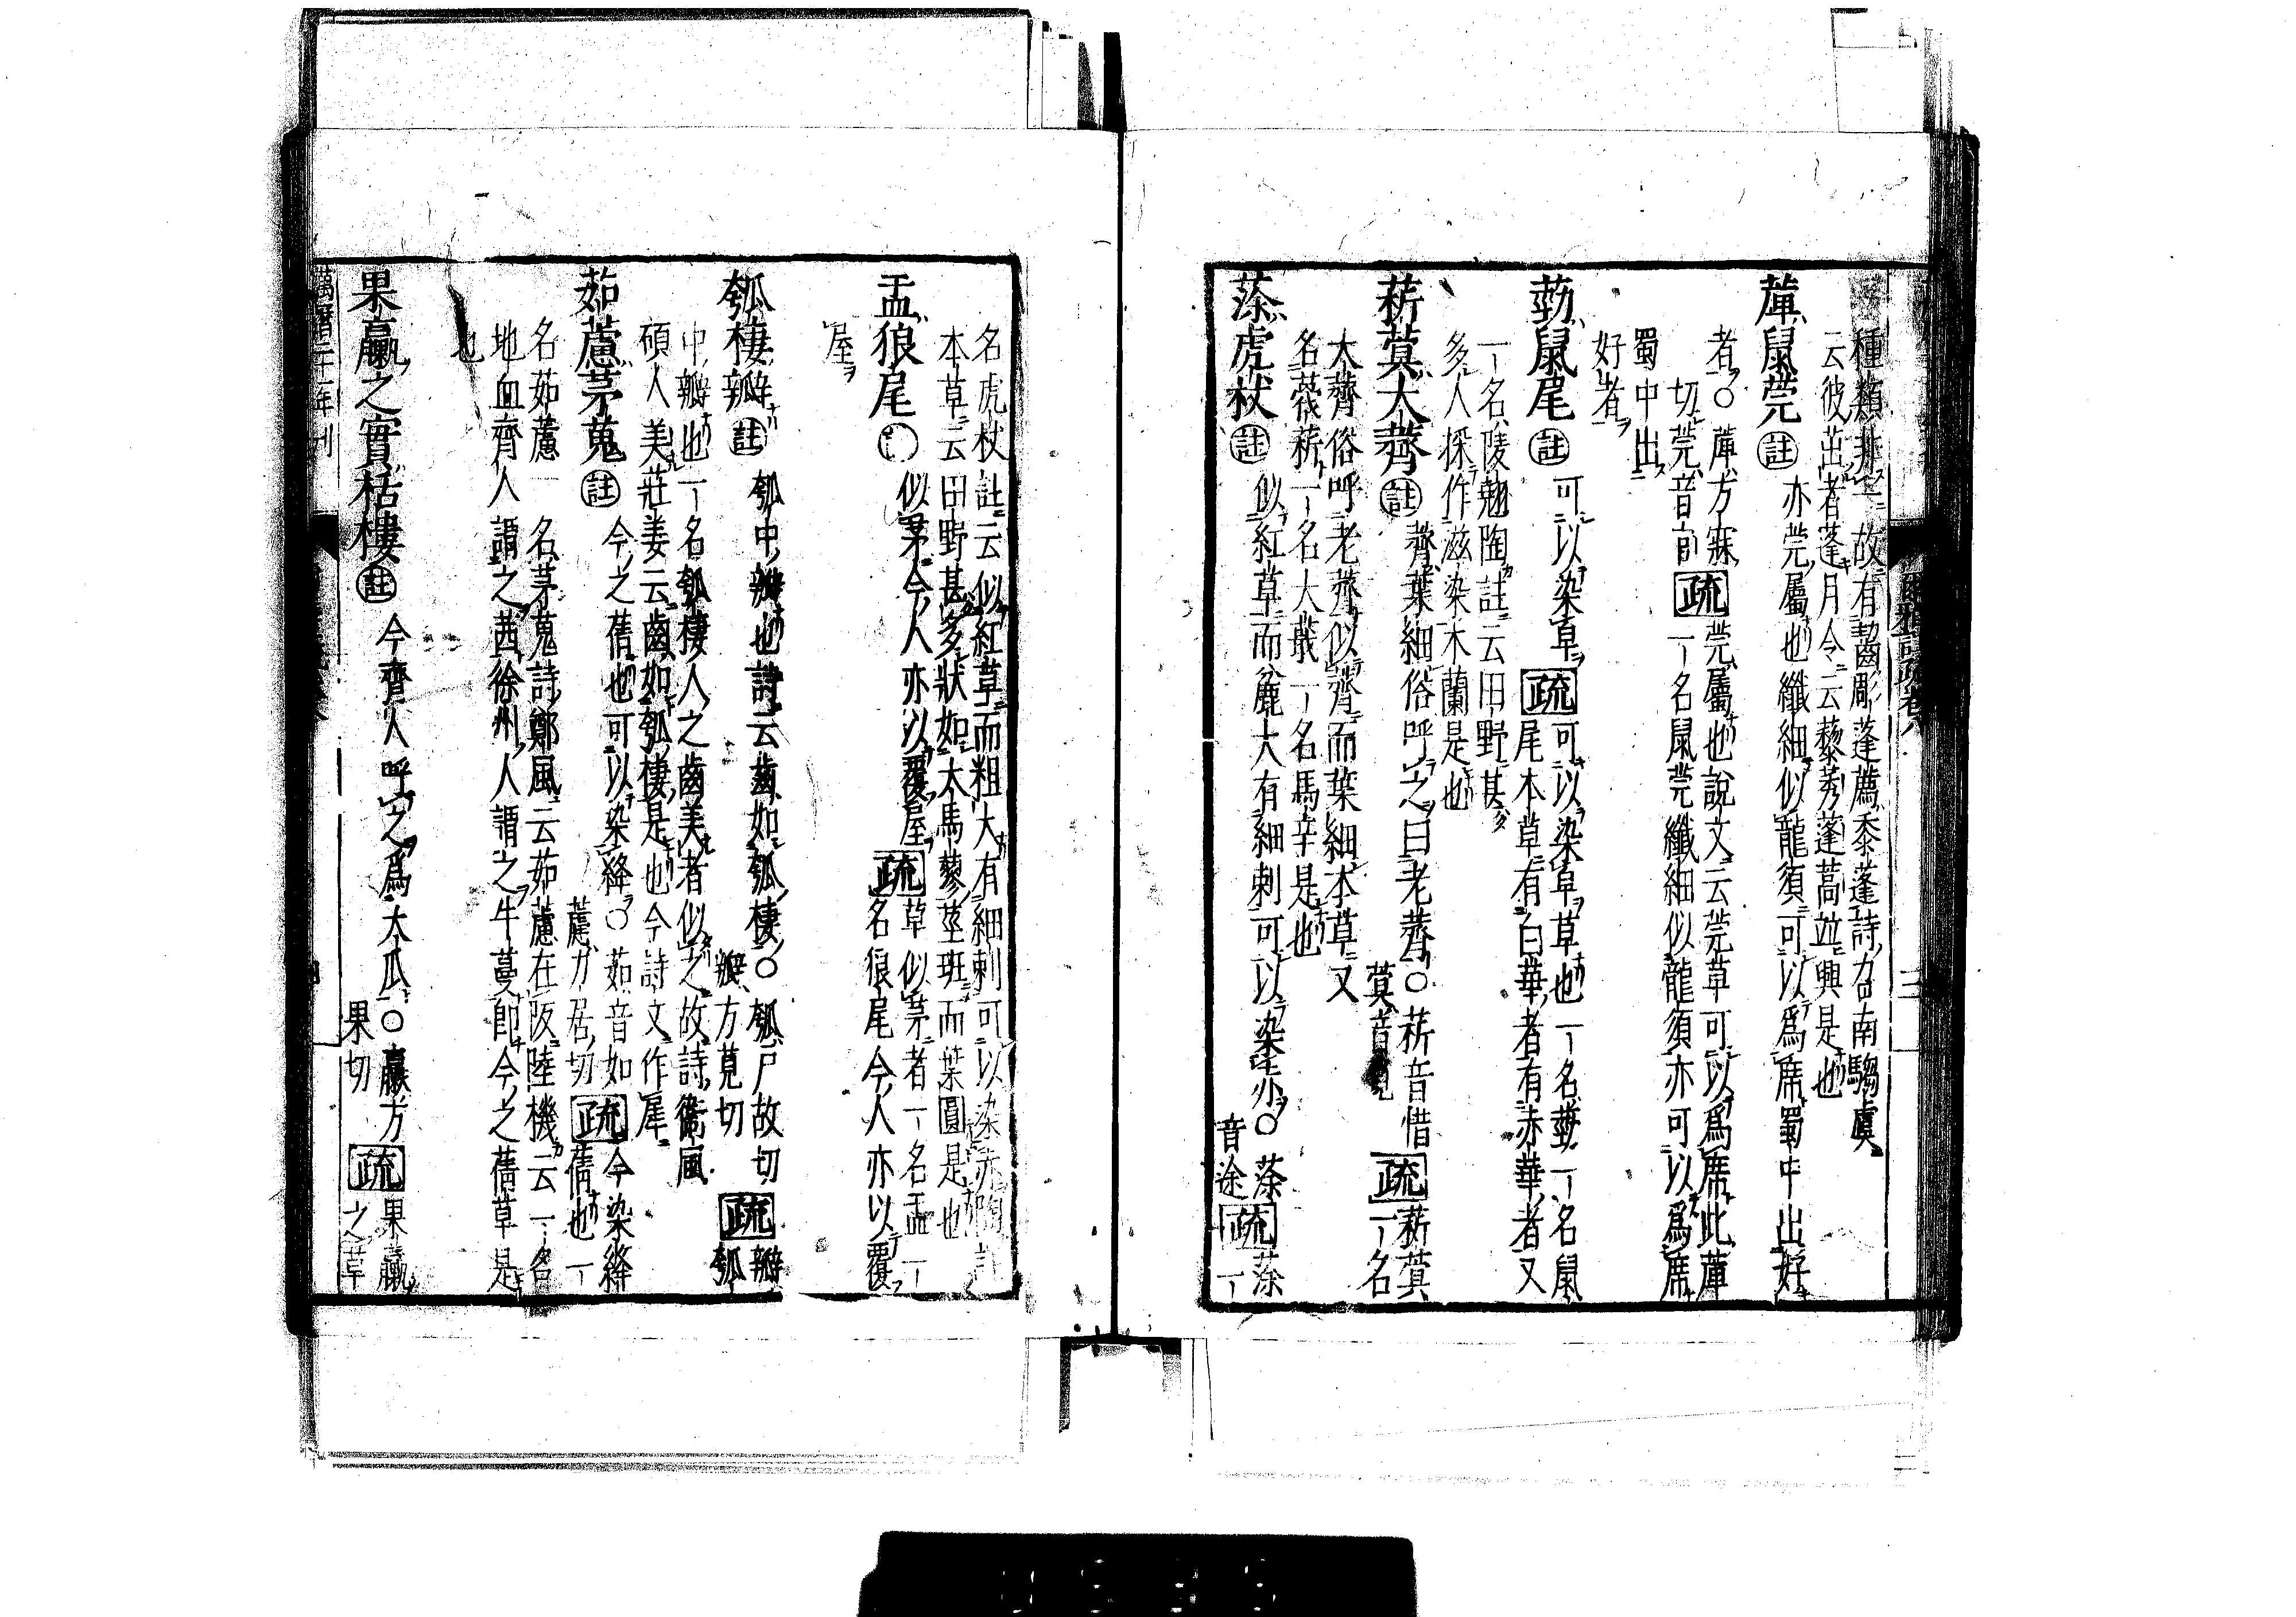 種類非一故有齧彫蓬薦黍蓬詩召南騶虞
云彼茁者蓬月令云藜莠蓬蒿竝興是也
蓾鼠莞註亦莞屬也纖細似龍須可以爲席蜀中出好
者○方寐
切莞音官疏莞屬也說文云莞草可以爲席此
一名鼠莞纖細似龍須亦可以爲席
蜀中出
好者
葝鼠尾註可以染皁疏可以染皁草也一名葝一名鼠
尾本草有白華者有赤華者又
一名陵翹陶註云田野甚
多人採作滋染木蘭是也
菥蓂大薺註薺葉細俗呼之曰老薺○菥音惜
蓂音覓疏菥蓂一名
大薺俗呼老薺似薺而葉細本草又
名蔑菥一名大蕺一名馬辛是也
蒤虎杖註似紅草而麁大有細刺可以染赤○蒤
音途疏蒤一
名虎杖註云似紅草而粗大有細刺可以染赤陶註
本草云田野甚多狀如大馬蓼莖班而葉圓是也
孟狼尾似茅今人亦以覆屋疏草似茅者一名孟一
名狼尾今人亦以覆
屋
瓠棲瓣註瓠中瓣也詩云齒如瓠棲○瓠戶故切
瓣方莧切疏瓣瓠
中瓣也一名瓠棲人之齒美者似之故詩衛風
碩人美莊姜云齒如瓠棲是也今詩文作犀
茹藘茅蒐註今之蒨也可以染絳○茹音如
藘力居切疏今染絳蒨也一
名茹藘一名茅蒐詩鄭風云茹藘在阪陸機云一名
地血齊人謂之茜徐州人謂之牛蔓卽今之蒨草是
也
果臝之實栝樓註今齊人呼之爲天瓜○臝力
果切疏果臝
之草
萬曆二十一年刊
爾雅註疏卷八
三